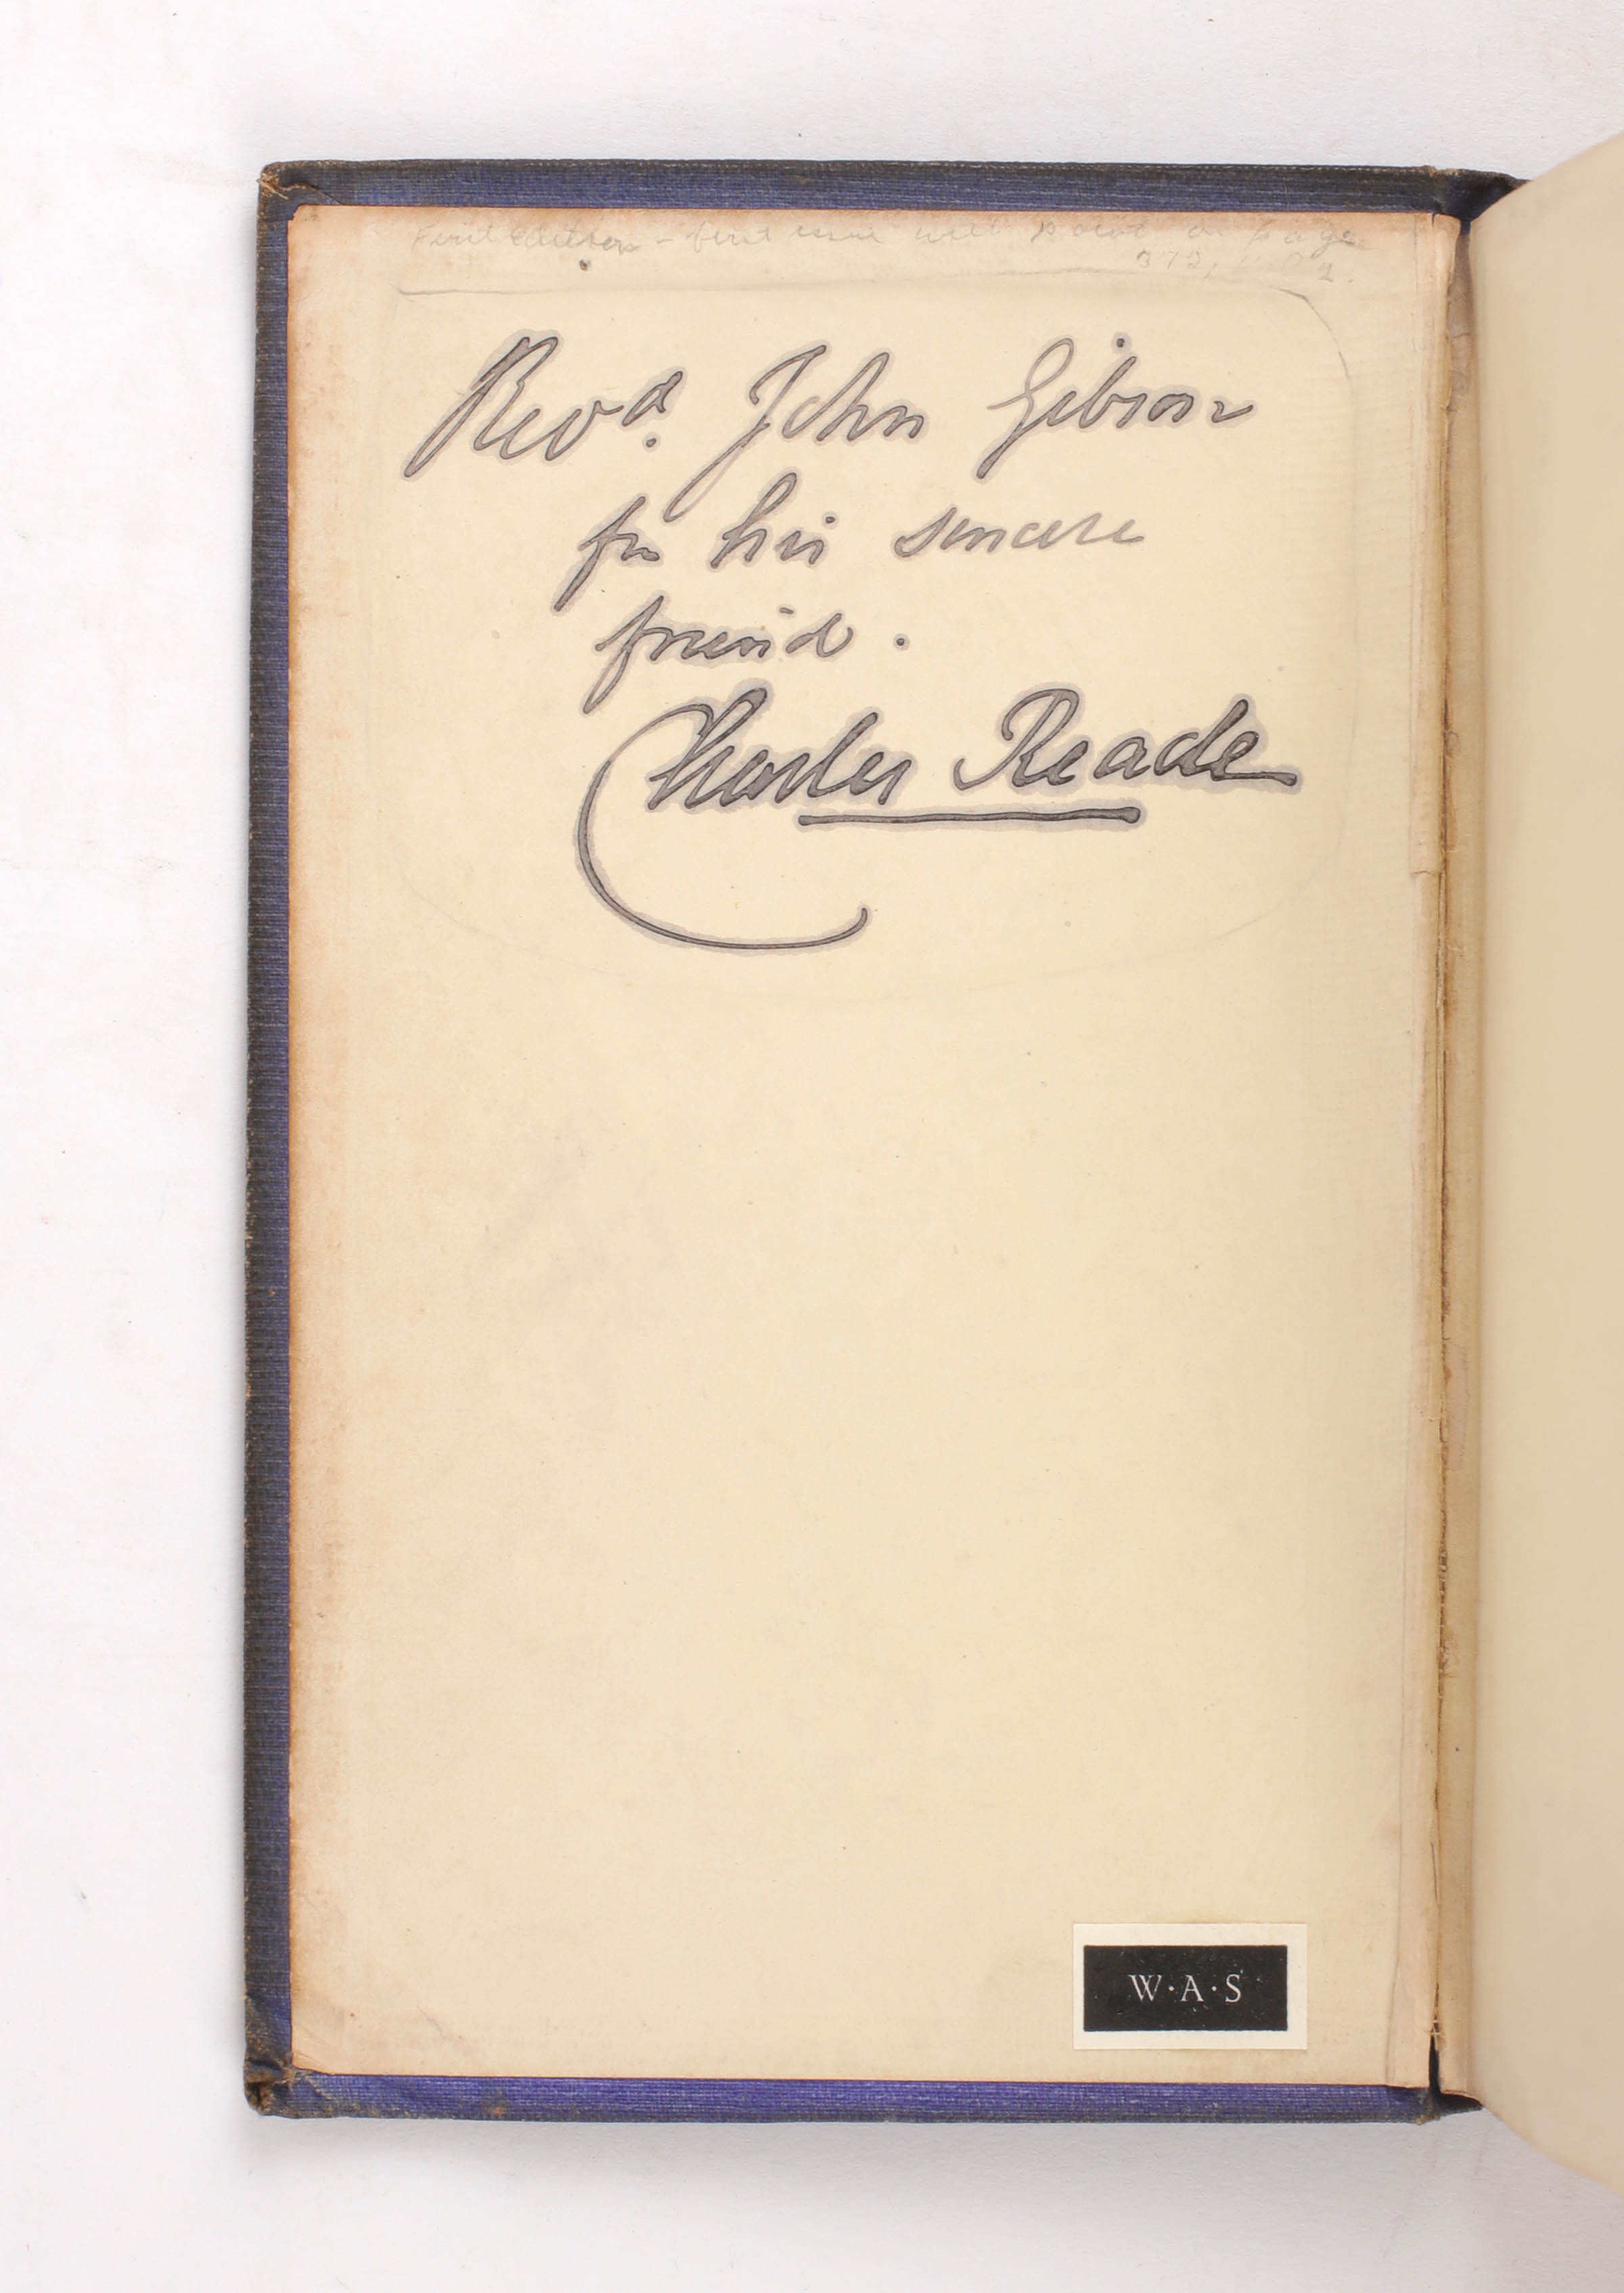 First Edition - first issue with point on page
372, Vol 2.
Revd. John Gibson
fm his sincere
friend.
Charles Reade
W·A·S